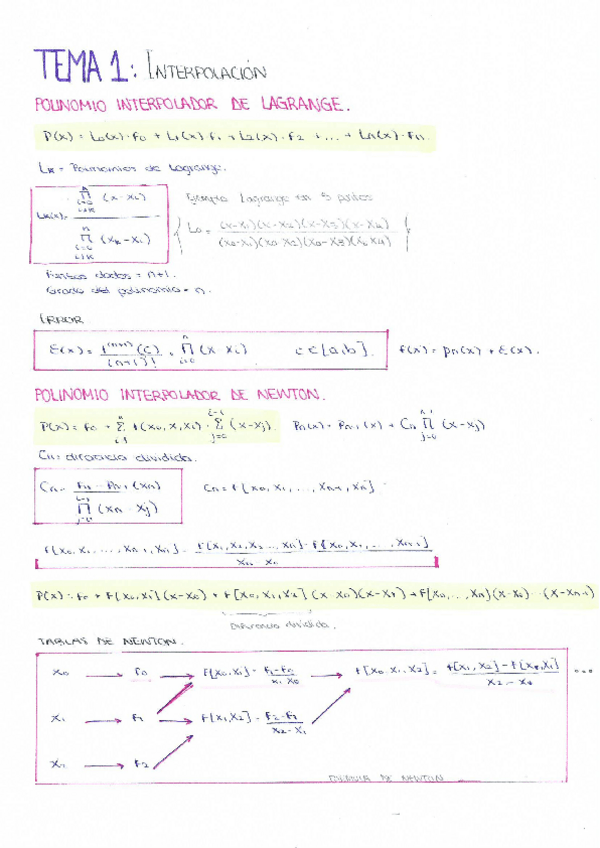 TEMA 1: INTERPOLACIÓN
POLINOMIO INTERPOLADOR DE LAGRANGE.
P(x) = L₀(x)·f₀ + L₁(x)·f₁ + L₂(x)·f₂ + ... + Lₙ(x)·fₙ.
Lₖ = Polinomios de Lagrange.
Lₖ(x) = ∏ⁿ i=0 i≠k (x-xᵢ) / ∏ⁿ i=0 i≠k (xₖ-xᵢ)
Ejemplo Lagrange con 5 puntos
L₀ = (x-x₁)(x-x₂)(x-x₃)(x-x₄) / (x₀-x₁)(x₀-x₂)(x₀-x₃)(x₀-x₄)
Puntos dados = n+1.
Grado del polinomio = n.
ERROR
ε(x) = f⁽ⁿ⁺¹⁾(c) / (n+1)! · ∏ⁿ i=0 (x-xᵢ) c ∈ [a,b]. f(x) = pₙ(x) + ε(x).
POLINOMIO INTERPOLADOR DE NEWTON.
P(x) = f₀ + Σⁿ i=1 f(x₀,x₁,xᵢ) · Σ i-1 j=0 (x-xⱼ). Pₙ(x) = Pₙ₋₁(x) + Cₙ ∏ n-1 j=0 (x-xⱼ)
Cₙ = diferencia dividida.
Cₙ = fₙ - Pₙ₋₁(xₙ) / ∏ j=0 (xₙ-xⱼ) Cₙ = f[x₀,x₁,...,xₙ₋₁,xₙ]
f[x₀,x₁,...,xₙ₋₁,xₙ] = f[x₁,x₂,x₃...,xₙ] - f[x₀,x₁,...,xₙ₋₁] / xₙ - x₀
P(x) = f₀ + f[x₀,x₁](x-x₀) + f[x₀,x₁,x₂](x-x₀)(x-x₁) + f[x₀,...,xₙ](x-x₀)...(x-xₙ₋₁)
Diferencia dividida.
TABLAS DE NEWTON.
x₀ → f₀ → f[x₀,x₁] = f₁-f₀ / x₁-x₀ → f[x₀,x₁,x₂] = f[x₁,x₂] - f[x₀,x₁] / x₂-x₀ ...
x₁ → f₁ → f[x₁,x₂] = f₂-f₁ / x₂-x₁
→ f₂
DE NEWTON